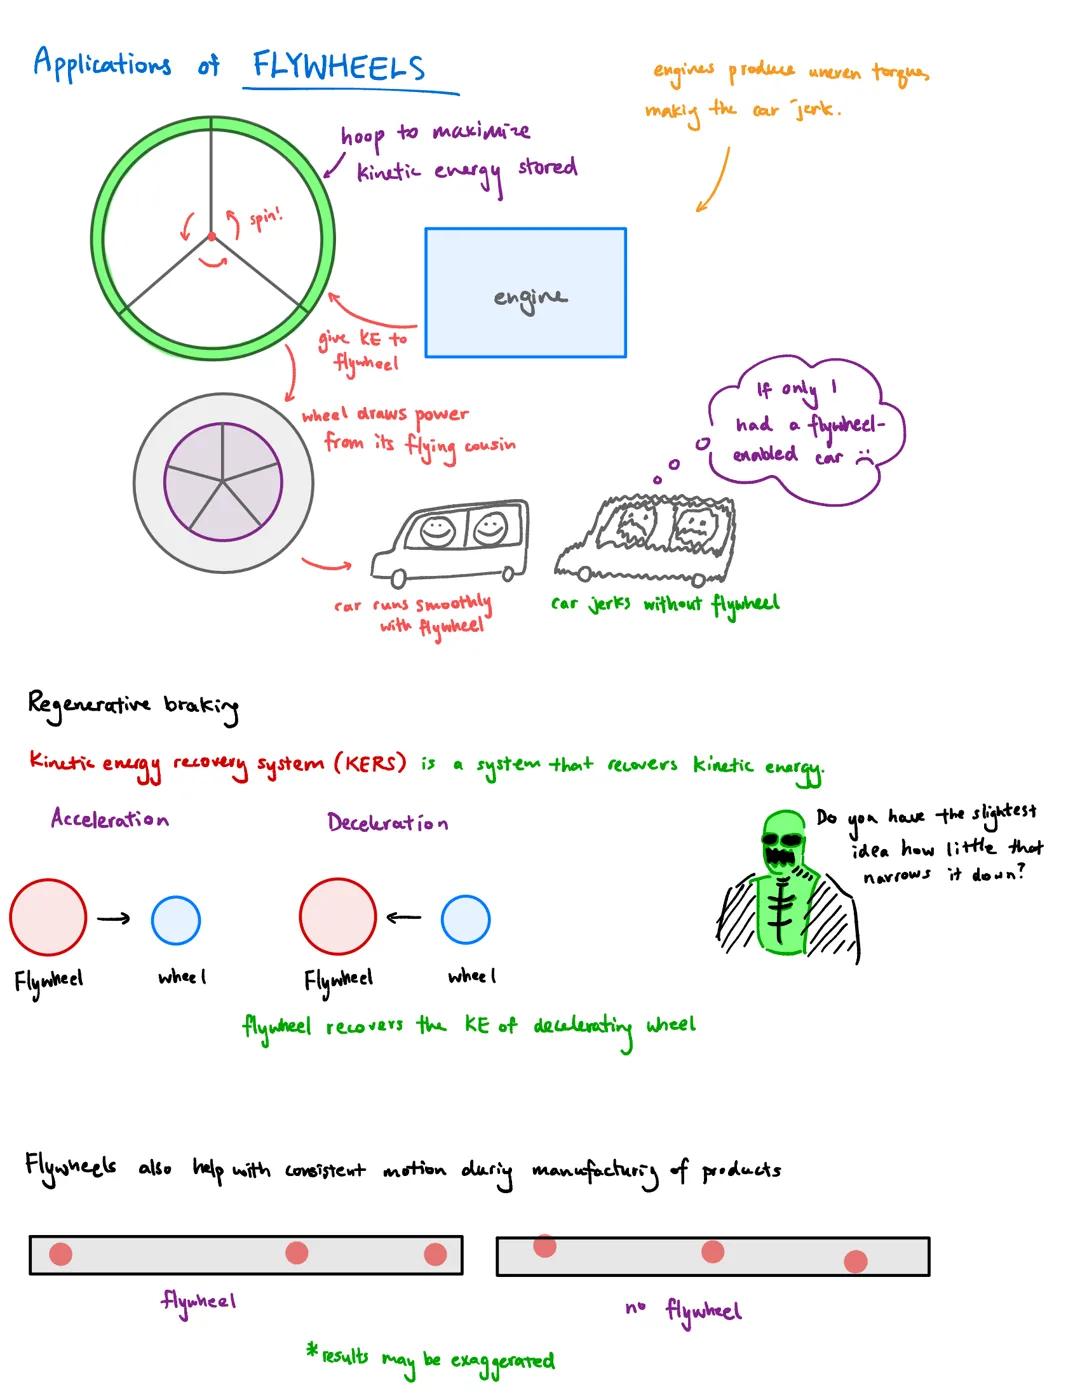 Applications of FLYWHEELS
engines produce uneven torque,
makig the car jerk.
hoop to maximize
kinetic energy stored
spin!
engine
give KE to
flywheel
wheel draws power
from its flying cousin
If only I
had a flywheel-
enabled car :(
car runs smoothly
with flywheel
car jerks without flywheel
Regenerative braking
Kinetic energy recovery system (KERS) is a system that recovers kinetic energy.
Acceleration
Deceleration
Do you have the slightest
idea how little that
narrows it down?
Flywheel
wheel
Flywheel
wheel
flywheel recovers the KE of decelerating wheel
Flywheels also help with consistent motion durig manufacturig of products
flywheel
no flywheel
*results may be exaggerated